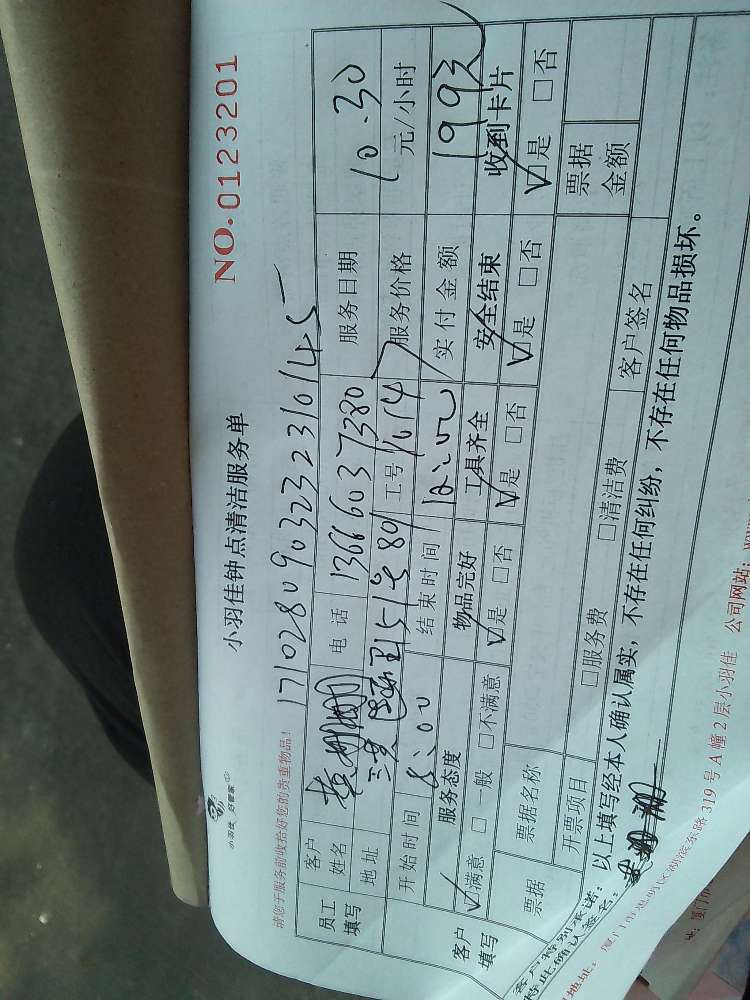 小羽佳 好管家
小羽佳钟点清洁服务单
NO.0123201
请您于服务前收拾好您的贵重物品!
1710280903232310145
员工填写
客户姓名
电话 13666037380
服务日期 10.30
地址
工号 1014
服务价格 元/小时
客户填写
开始时间 8:00
结束时间 12:00
实付金额 199元
服务态度
物品完好
工具齐全
安全结束
收到卡片
☑满意 □一般 □不满意
☑是 □否
☑是 □否
☑是 □否
☑是 □否
票据
票据名称
票据金额
开票项目
□服务费 □清洁费
客户签名
客户特别承诺:以上填写经本人确认属实,不存在任何纠纷,不存在任何物品损坏。
特此确认签名:
地址:厦门市思明区湖滨东路319号A幢2层小羽佳 公司网站: